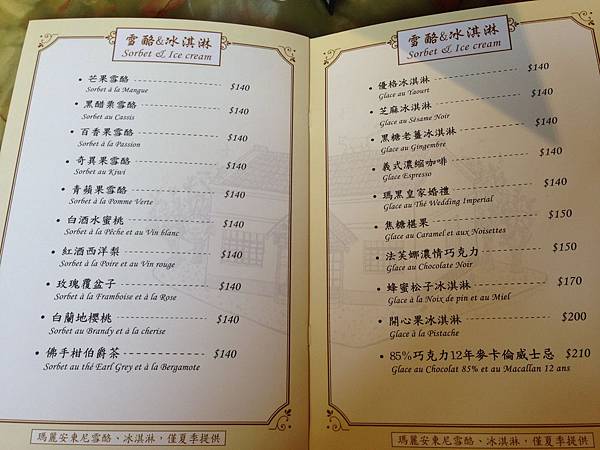 雪酪&冰淇淋
Sorbet & Ice cream
• 芒果雪酪 $140
Sorbet à la Mangue
• 黑醋栗雪酪 $140
Sorbet au Cassis
• 百香果雪酪 $140
Sorbet à la Passion
• 奇異果雪酪 $140
Sorbet au Kiwi
• 青蘋果雪酪 $140
Sorbet à la Pomme Verte
• 白酒水蜜桃 $140
Sorbet à la Pêche et au Vin blanc
• 紅酒西洋梨 $140
Sorbet à la Poire et au Vin rouge
• 玫瑰覆盆子 $140
Sorbet à la Framboise et à la Rose
• 白蘭地櫻桃 $140
Sorbet au Brandy et à la cherise
• 佛手柑伯爵茶 $140
Sorbet au thé Earl Grey et à la Bergamote
瑪麗安東尼雪酪、冰淇淋，僅夏季提供
雪酪&冰淇淋
Sorbet & Ice cream
• 優格冰淇淋 $140
Glace au Yaourt
• 芝麻冰淇淋 $140
Glace au Sésame Noir
• 黑糖老薑冰淇淋 $140
Glace au Gingembre
• 義式濃縮咖啡 $140
Glace Espresso
• 瑪黑皇家婚禮 $140
Glace au Thé Wedding Imperial
• 焦糖榛果 $150
Glace au Caramel et aux Noisettes
• 法芙娜濃情巧克力 $150
Glace au Chocolate Noir
• 蜂蜜松子冰淇淋 $170
Glace à la Noix de pin et au Miel
• 開心果冰淇淋 $200
Glace à la Pistache
• 85%巧克力12年麥卡倫威士忌 $210
Glace au Chocolat 85% et au Macallan 12 ans
瑪麗安東尼雪酪、冰淇淋，僅夏季提供